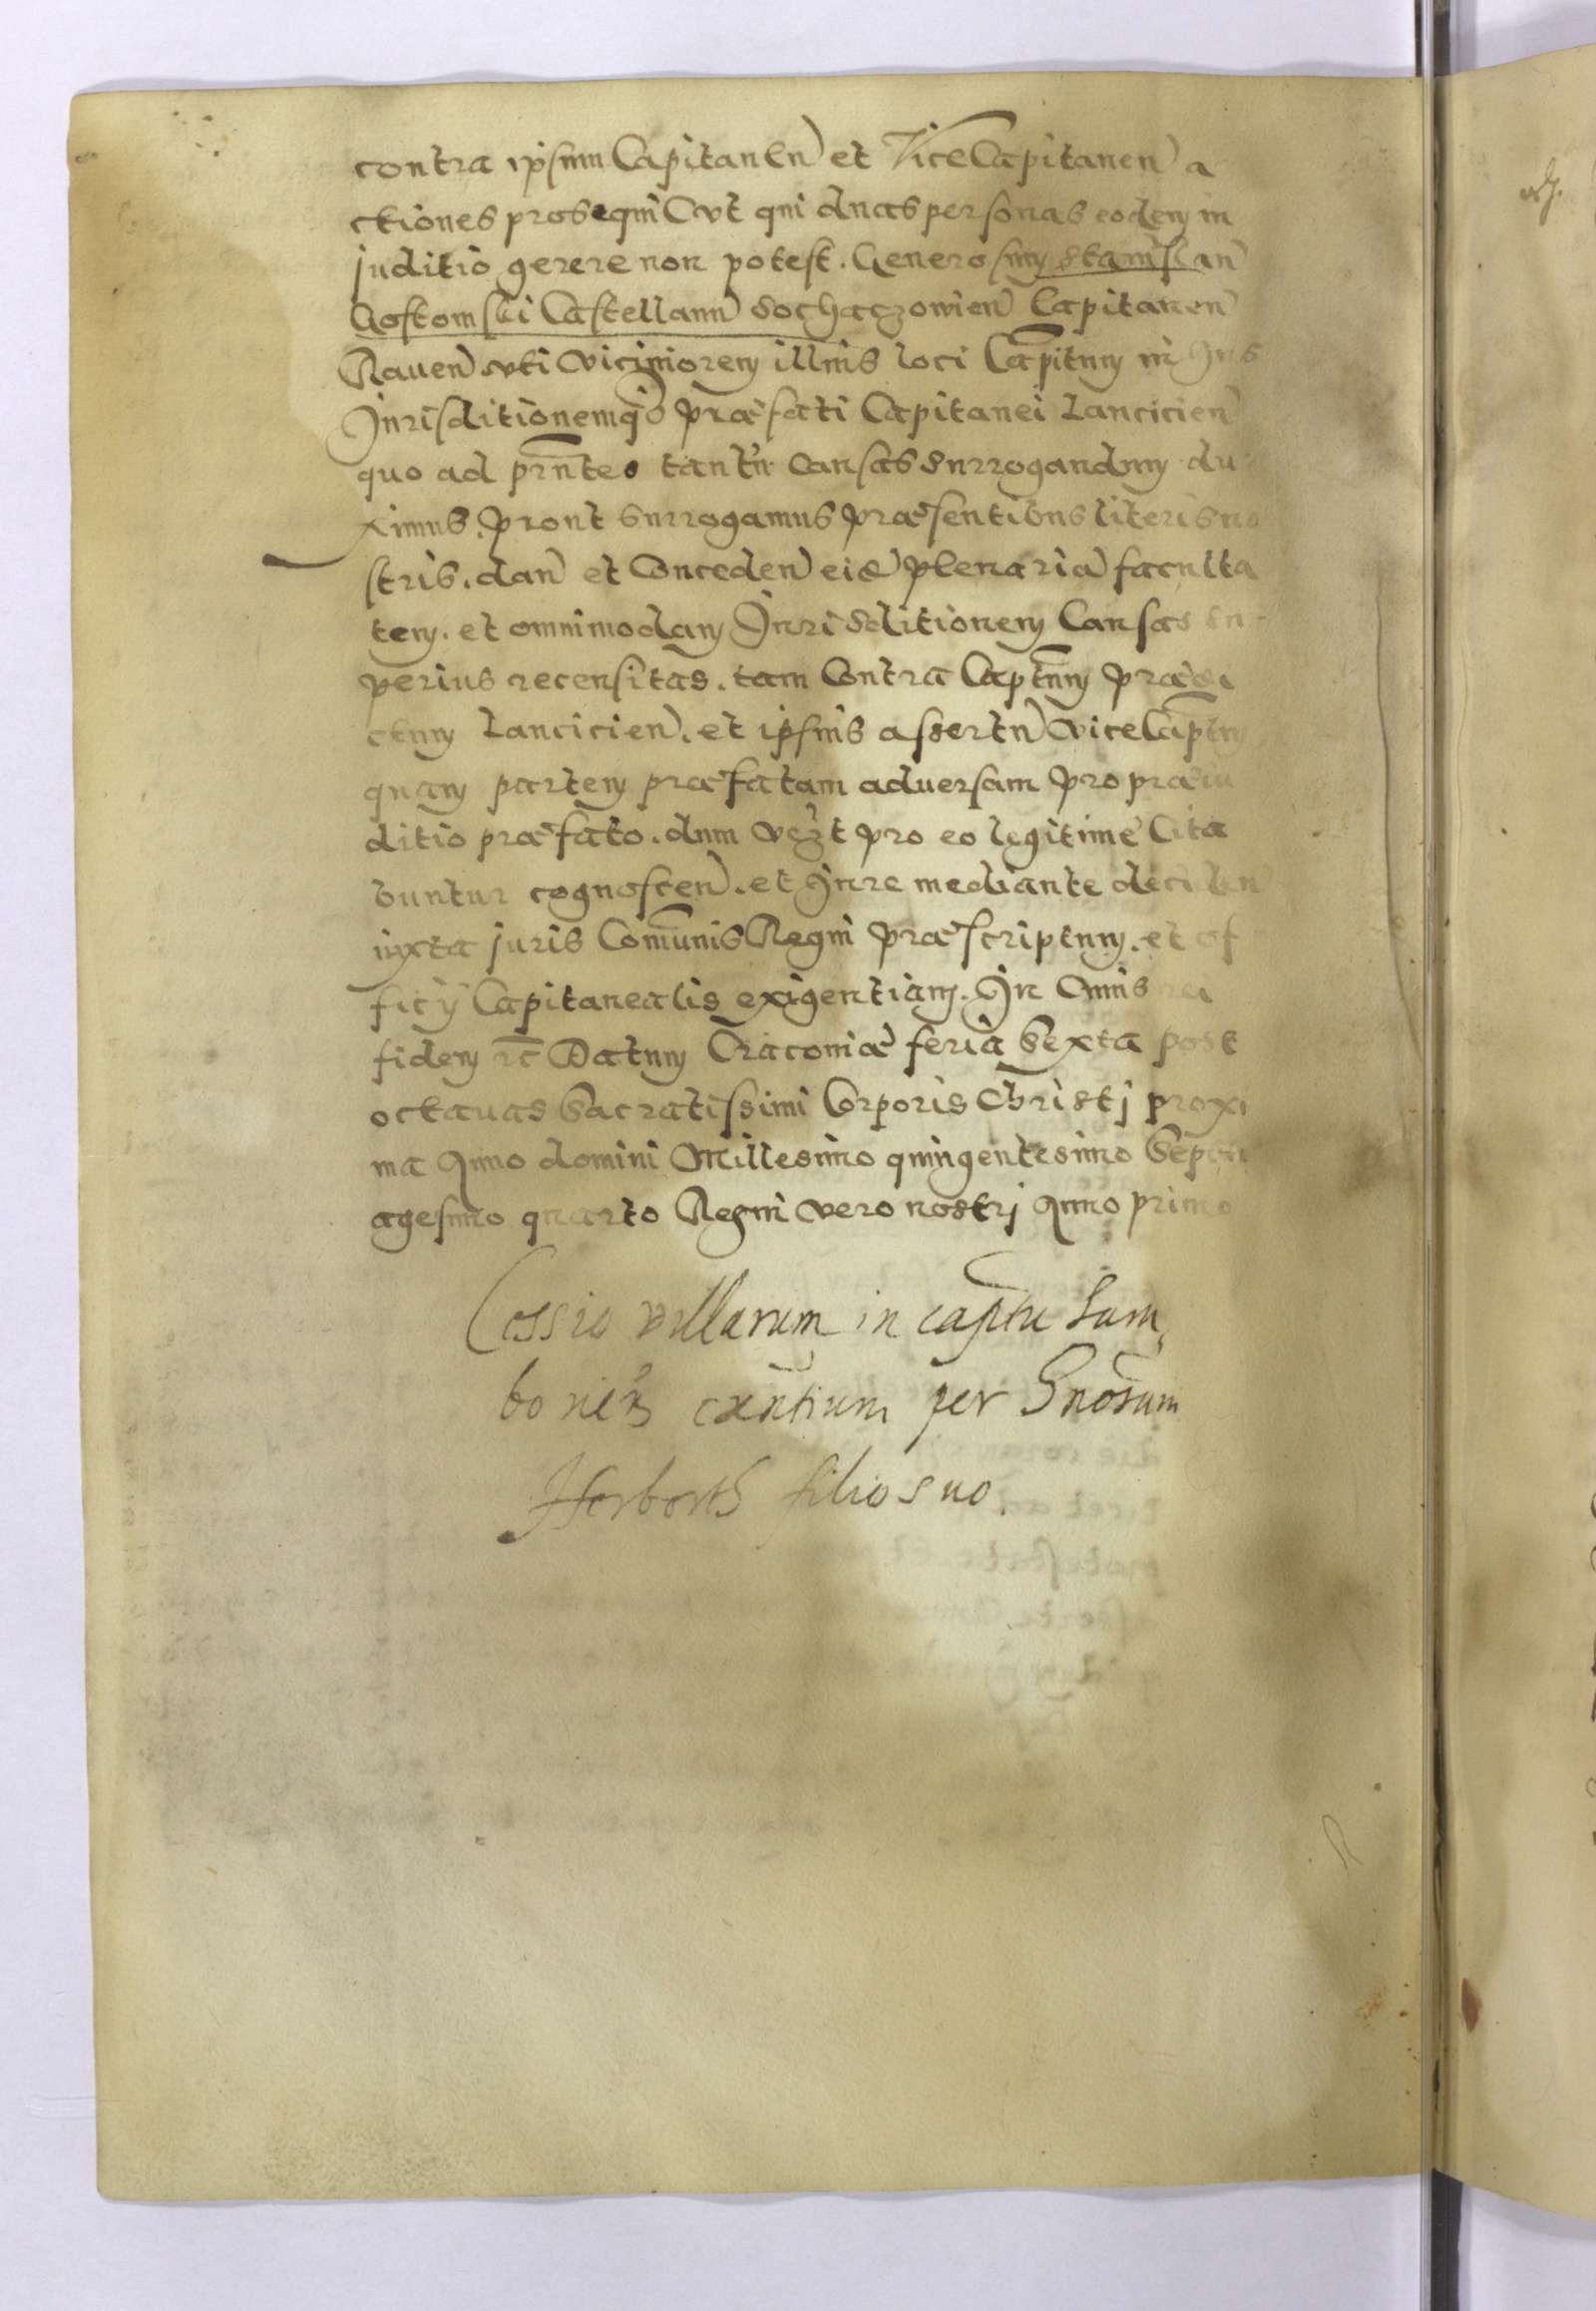 contra ipsum Capitaneū et ViceCapitaneū a
ctiones prosequi Cvt qui duas personas eodem in
juditio gerere non potest. Generosum Stanislaū
Gostomski Castellanū Sochaczovieñ Capitaneū
Raueñ vti viciniorem illius loci Capitnum in Jus
Jurisditionemq̃ præfati Capitanei Lancicieñ
quo ad prñtes tantũ Causas Surrogandum du
ximus. Prout Surrogamus præsentibus literis no
stris. dañ et Concedeñ eid plenariã faculta
tem. et omnimodam Jurisditionem Causas su
perius recensitas. tam Contra Captnum prædi
ctum Lancicieñ. et ipsius assertũ viceCaptnum
quam partem præfatam adversam pro præiu
ditio præfato. dum pro eo legitime Cita
buntur cognosceñ. et Jure mediante decideñ
iuxta juris Comunis Regni præscriptum. et of
ficij Capitanealis exigentiam. In Cuius rei
fidem rc̃ Datum Cracoviæ feria Sexta post
octavas Sacratissimi Corporis Christj proxi
ma Anno domini Millesimo quingentesimo Septu
agesimo quarto Regni vero nostrj Anno primo
Cessio villarum in captu Sam
borieñ exñtium per Gnosum
Herborth filio suo.